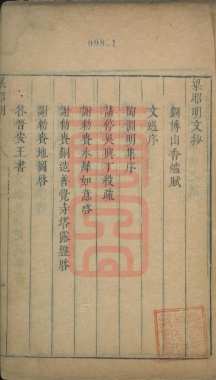 098-1
梁昭明文抄
銅博山香爐賦
文選序
陶淵明集序
請停吳興丁役疏
謝勅賚水犀如意啓
謝勅賚制造善覺寺塔露盤啓
謝勅賚地圖啓
答晉安王書
梁昭明